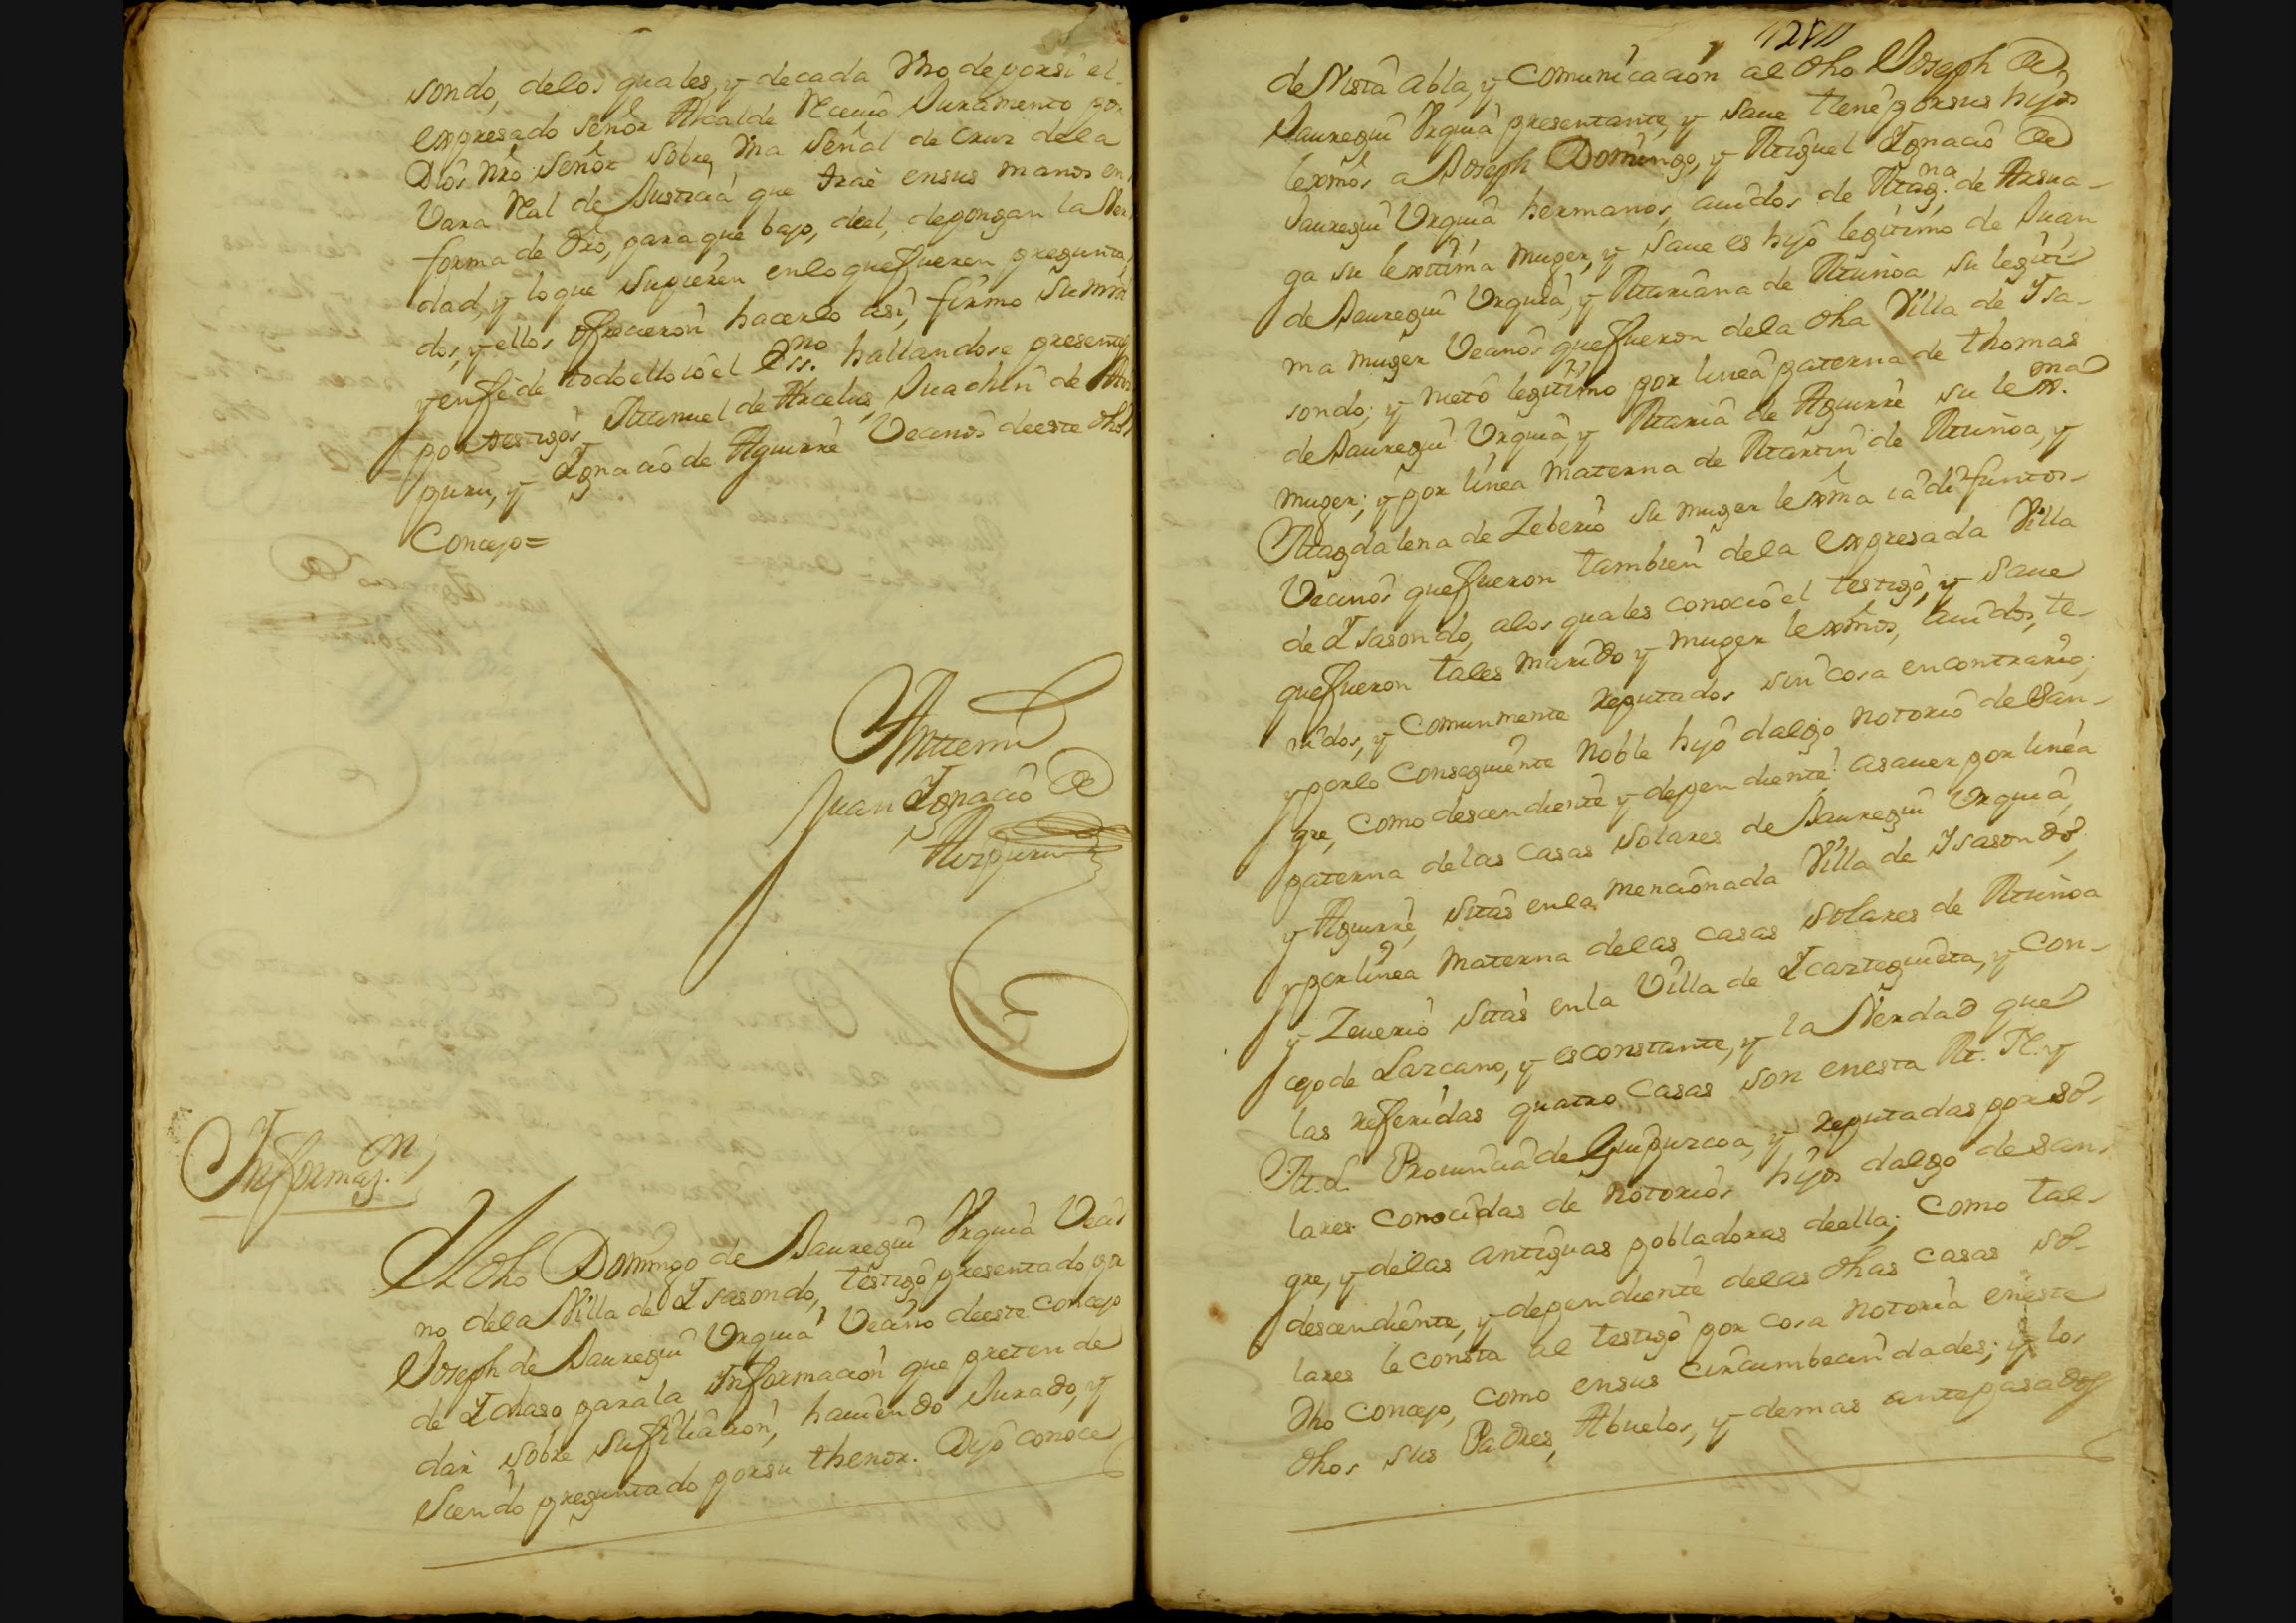 sondo, delos quales, y decada Vno deporsi el
expresado señor Alcalde Recivio Juramento por
Dios Nrō señor sobre Vna señal de cruz dela
Vara Real de Justicia que trae ensus manos en
forma de Dro, para que bajo, deel, depongan la Ver
dad, y loque supieren enlo quefueren pregunta
dos, y ellos ofrecieron hacerlo asi, firmo sumrd
yenfe de todoello io el Essno. hallandose presentes
por testigos Manuel de Arcelus, Juachin de
puru, y Ignacio de Aguirre Vecinos deeste dho
Concejo=
Antemi
Juan Ignacio de
Aizpuru
Informazn.
El dho Domingo de Jauregui Vrquia Veci
no dela Villa de Isasondo, testigo presentado por
Joseph de Jauregui Vrquia Vecino deeste Concejo
de Ichaso parala Informacion que pretende
dar sobre sufiliacion, haviendo Jurado, y
Siendo preguntado porsu thenor. Dijo conoce
128
de Vista abla, y Comunicacion al dho Joseph de
Jauregui Vrquia presentante, y save tiene porsus hijos
lexmos a Joseph Domingo, y Miguel Ignacio de
Jauregui Vrquia hermanos, avidos de Magna. de Arsua-
ga su lexitima Muger, y save es hijo legitimo de Juan
de Jauregui Vrquia, y Mariana de Muñoa su legiti
ma muger Vecinos quefueron dela dha Villa de Isa-
sondo; y nieto legitimo por linea paterna de thomas
de Jauregui Vrquia, y Maria de Aguirre su lexma.
muger; y por linea Materna de Martin de Muñoa, y
Magdalena de Zeberio su muger lexma ia difuntos-
Vecinos quefueron tambien dela expresada Villa
de Isasondo, alos quales conocio el testigo, y save
quefueron tales marido y muger lexmos, avidos, te-
nidos, y Comunmente reputados sin cosa encontrario;
y porlo Consequiente Noble hijo dalgo notorio de san-
gre, Como descendiente y dependiente, asaver por linea
paterna delas casas solares de Jauregui Vrquia,
y Aguirre, sitas enla mencionada Villa de Isasondo,
y por linea Materna delas casas solares de Muñoa
y Zeverio sitas enla Villa de Icazteguieta, y Con-
cejo de Lazcano, y esconstante, y la Verdad que
las referidas quatro Casas son enesta M. N. y
M. L. Provincia de Guipuzcoa, y reputadas por so-
lares conocidas de notorios hijos dalgo de san-
gre, y delas antiguas pobladoras deella; Como tal
descendiente, y dependiente delas dhas casas so-
lares le consta al testigo por cosa notoria eneste
dho Concejo, como ensus circumbecindades; y los
dhos sus Padres, Abuelos, y demas antepasados